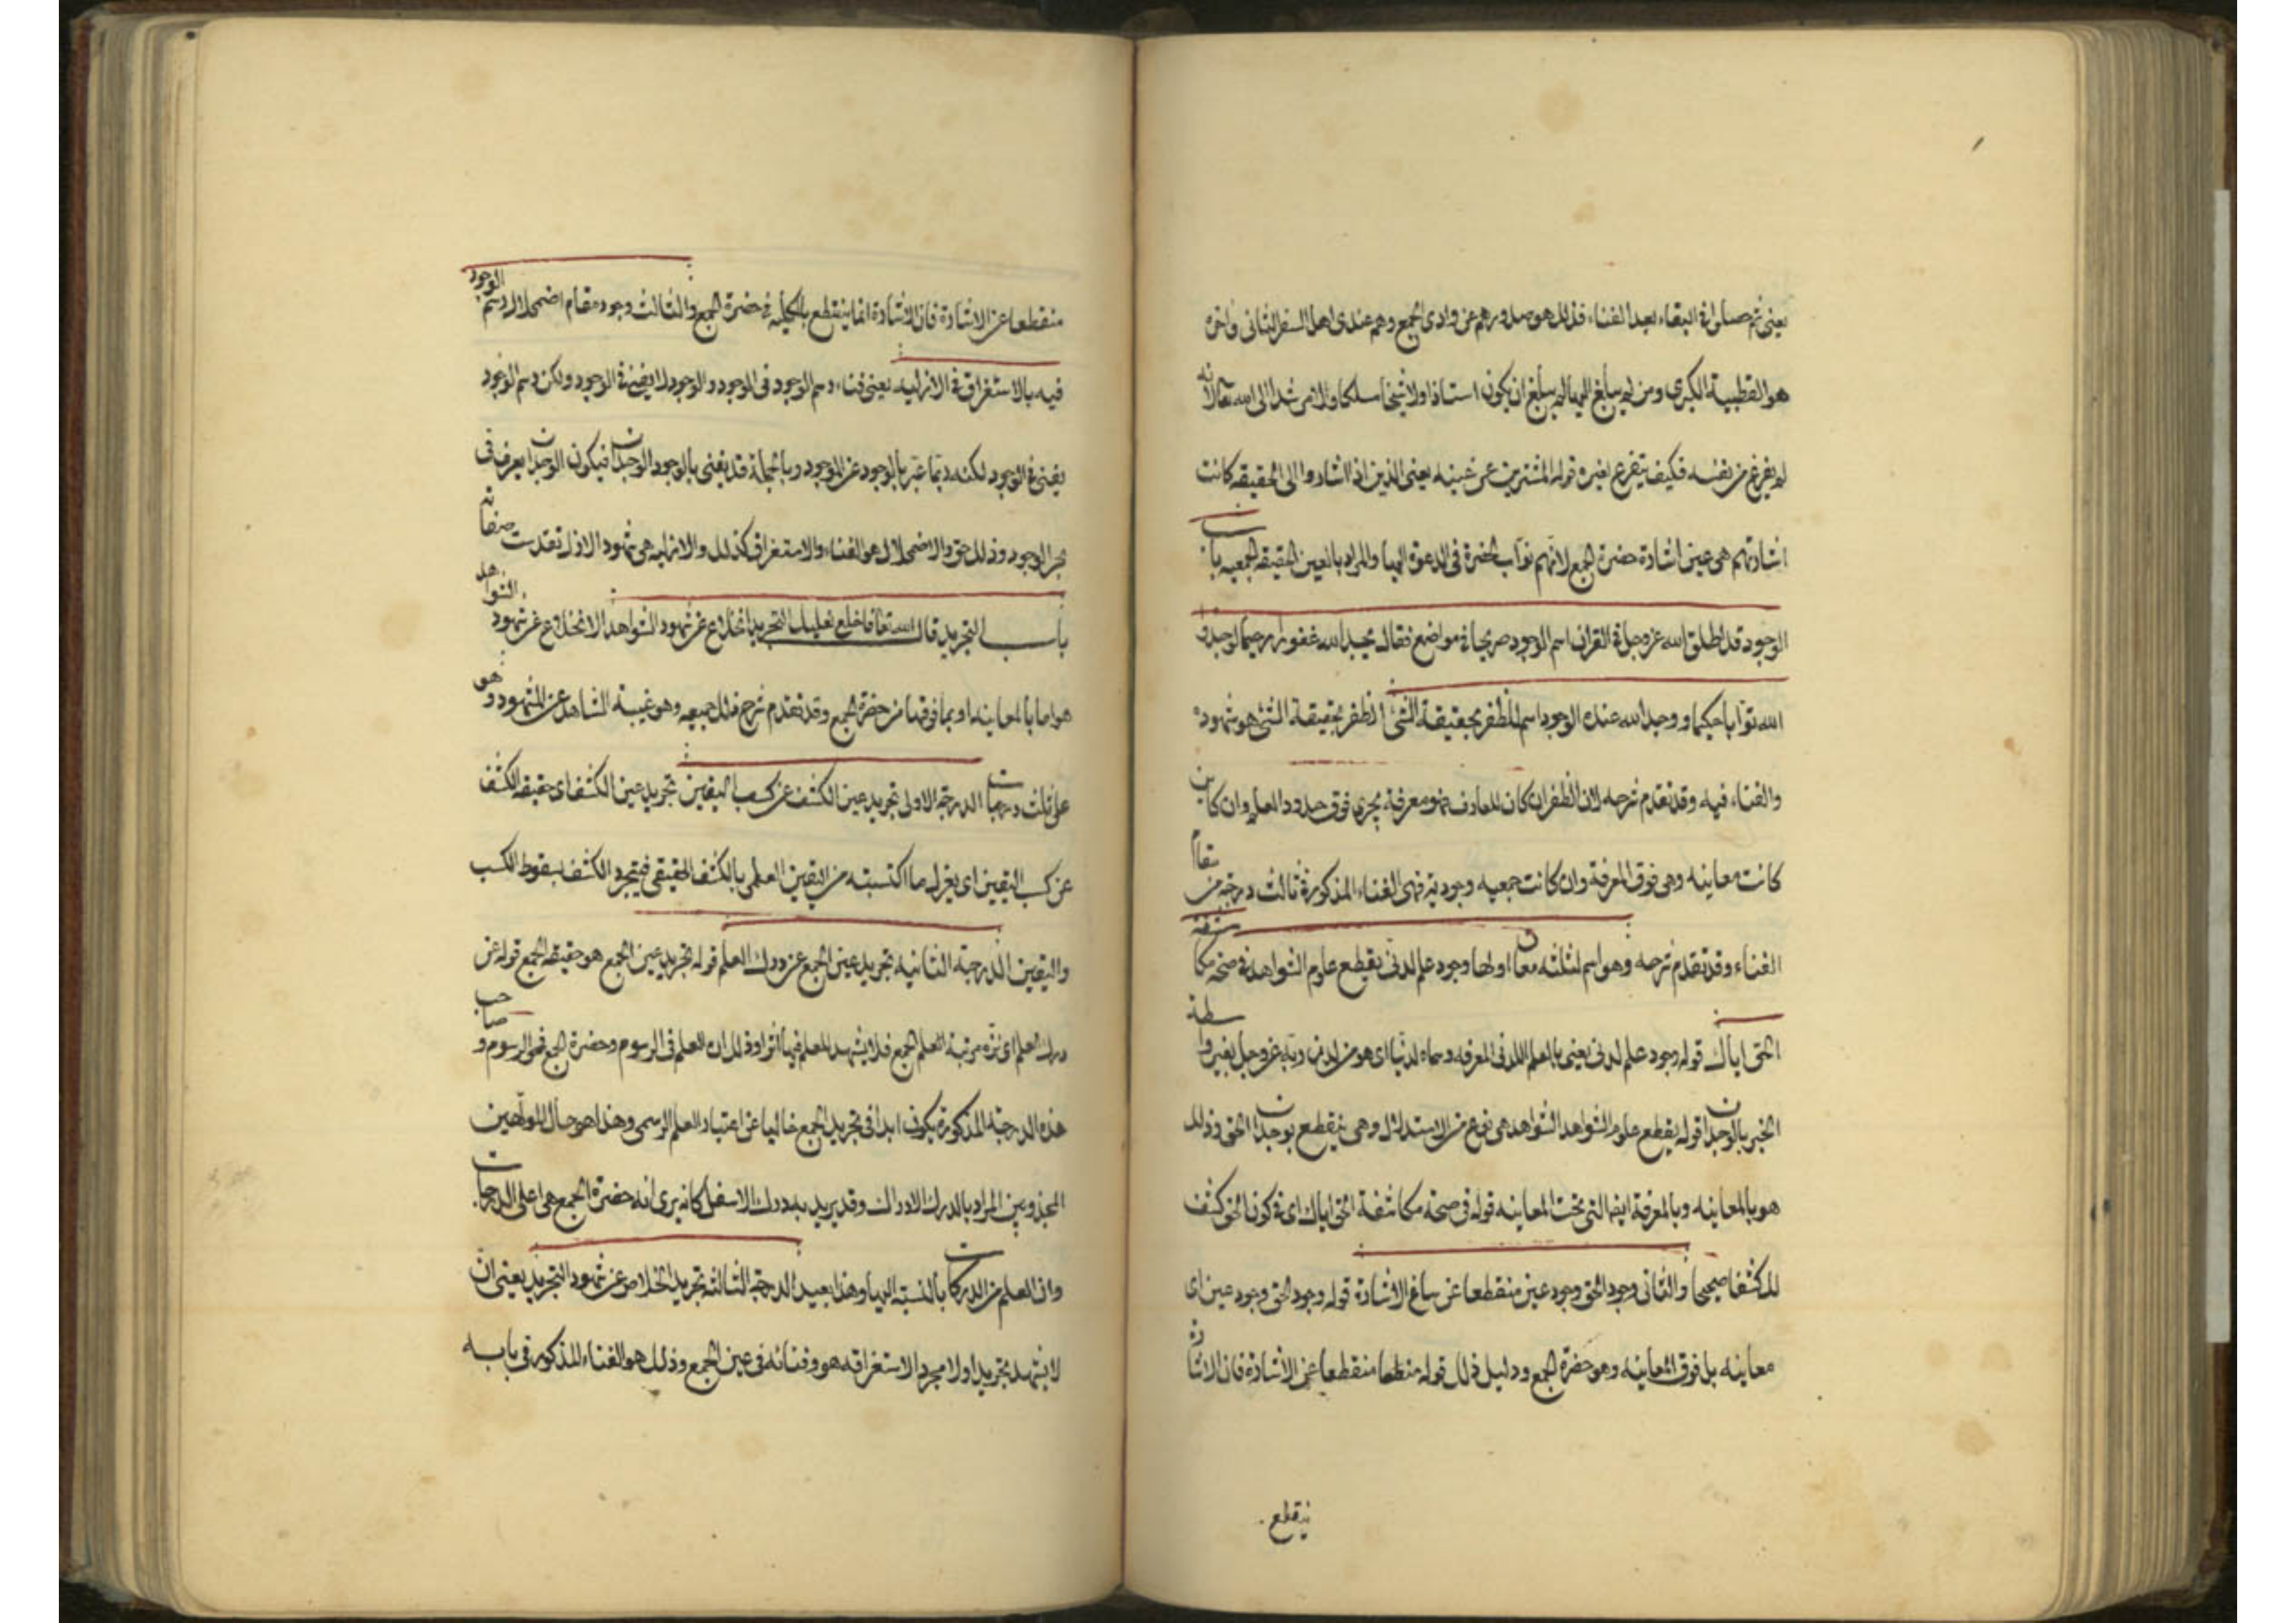 يعنى ثم حصلوا فى البقاء بعد الفناء فذلك هو صدورهم عن وادى الجمع وهم عندى اهل السفر الثانى واخره
هو القطبية الكبرى ومن لم يبلغ اليها لم يبلغ ان يكون استاذا ولا شيخا مسلكا ولا مرشدا الى الله تعالى لانه
لم يفرغ من نفسه فكيف يتفرغ لغيره قوله المشيرين عن عينه يعنى الذين اذا اشاروا الى الحقيقه كانت
اشارتهم هى عين اشارة حضرة الجمع لانهم نواب الحضرة فى الدعوة اليها والمراد بالعين الحقيقة الجمعيه باب
الوجود قد اطلق الله عز وجل فى القران اسم الوجود صريحا فى مواضع فقال يجد الله غفورا رحيما لوجدوا
الله توابا حكيما ووجد الله عنده الوجود اسم للظفر بحقيقة الشئ الظفر بحقيقة الشئ هو شهوده
والفناء فيه وقد تقدم شرحه لان الظفر ان كان للعارف فهو معرفة يجرى فوق حدود العلم وان كانت
كانت معاينه وهى فوق المعرفة وان كانت جمعيه وجودية فهى الفناء المذكورة فى ثالث درجة من مقام
الفناء وقد تقدم شرحه وهو اسم لثلثه معان اولها وجود علم لدنى يقطع علوم الشواهد فى صحة مكاشفة
الحق اياك قوله وجود علم لدنى يعنى بالعلم اللدنى المعرفه وسماه لدنيا اى هو من لدن ربه عز وجل بغير واسطة
الخبر بالوجدان قوله يقطع علوم الشواهد الشواهد هى نوع من الاستدلال وهى ينقطع بوجدان الحق وذلك
هو بالمعاينه وبالمعرفة ايضا التى تحت المعاينه قوله فى صحة مكاشفة الحق اياك اى فى كون الحق كشف
لك كشفا صحيحا والثانى وجود الحق وجود عين منقطعا عن مساغ الاشارة قوله وجود الحق وجود عين اى
معاينه بل فوق المعاينه وهو حضرة الجمع ودليل ذلك قوله منقطعا منقطعا عن الاشارة فان الاشارة
ينقطع
منقطعا عن الاشارة فان الاشارة انما ينقطع بالكليه فى حضرة الجمع والثالث وجود مقام اضمحلال رسم الوجود
فيه بالاستغراق فى الازليه يعنى فناء رسم الوجود فى الوجود والوجود لا يفنى فى الوجود ولكن رسم الوجود
يفنى فى الوجود لكنه ربما عبر بالوجود عن الموجود وبالجملة قد يعنى بالوجود الوجدان فيكون الوجدان يعرف فى
بحر الوجود وذلك حق والاضمحلال هو الفناء والاستغراق كذلك والازليه هى شهود الازل تقدست صفاته
باب التجريد قال الله تعالى فاخلع نعليك التجريد انخلاع عن شهود الشواهد الانخلاع عن شهود الشواهد
هو اما بالمعاينه او بما فوقها من حضرة الجمع وقد تقدم شرح ذلك جميعه وهو غيبة الشاهد عن المشهود وهو
على ثلث درجات الدرجة الاولى تجريد عين الكشف عن كسب اليقين تجريد عين الكشف اى حقيقه الكشف
عن كسب اليقين اى يعزل ما اكتسبته من اليقين العلمى بالكشف الحقيقى فيتجرد الكشف بسقوط الكسب
واليقين الدرجة الثانيه تجريد عين الجمع عن درك العلم قوله تجريد عين الجمع هو حقيقه الجمع قوله عن
درك العلم اى نزه مرتبة العلم الجمع فلا يشهد للعلم فيها اثرا وذلك ان العلم فى الرسوم وحضرة الجمع تمحى الرسوم وصاحب
هذه الدرجة المذكورة يكون ابدا فى تجريد الجمع خاليا عن اعتبار العلم الرسمى وهذا هو حال المولهين
المجذوبين المراد بالدرك الادراك وقد يريد به درك الاسفل كانه يرى انه حضرة الجمع هى اعلى الدرجات
وان العلم من الدركات بالنسبة اليها وهذا بعيد الدرجة الثالثه تجريد الخلاص عن شهود التجريد يعنى ان
لا يشهد تجريدا ولا مجردا لاستغراقه هو وفنائه فى عين الجمع وذلك هو الفناء المذكور فى بابه